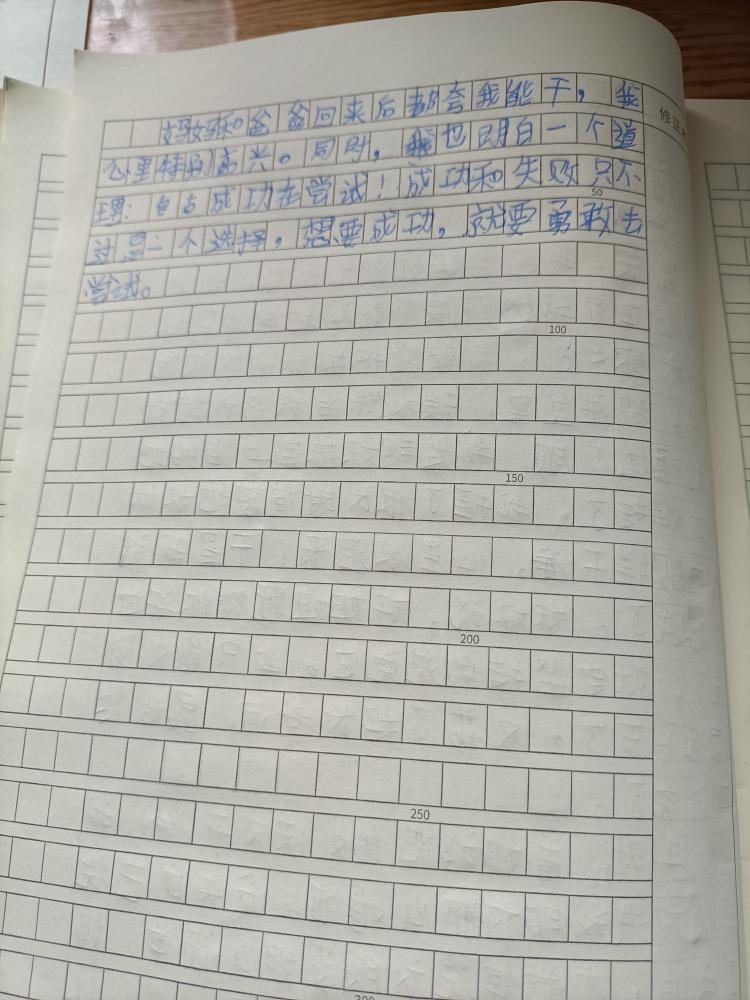 妈妈和爸爸回来后都夸我能干，我
心里特别高兴。同时，我也明白一个道
理：自古成功在尝试！成功和失败只不
过是二个选择，想要成功，就要勇敢去
尝试。
修正
50
100
150
200
250
300